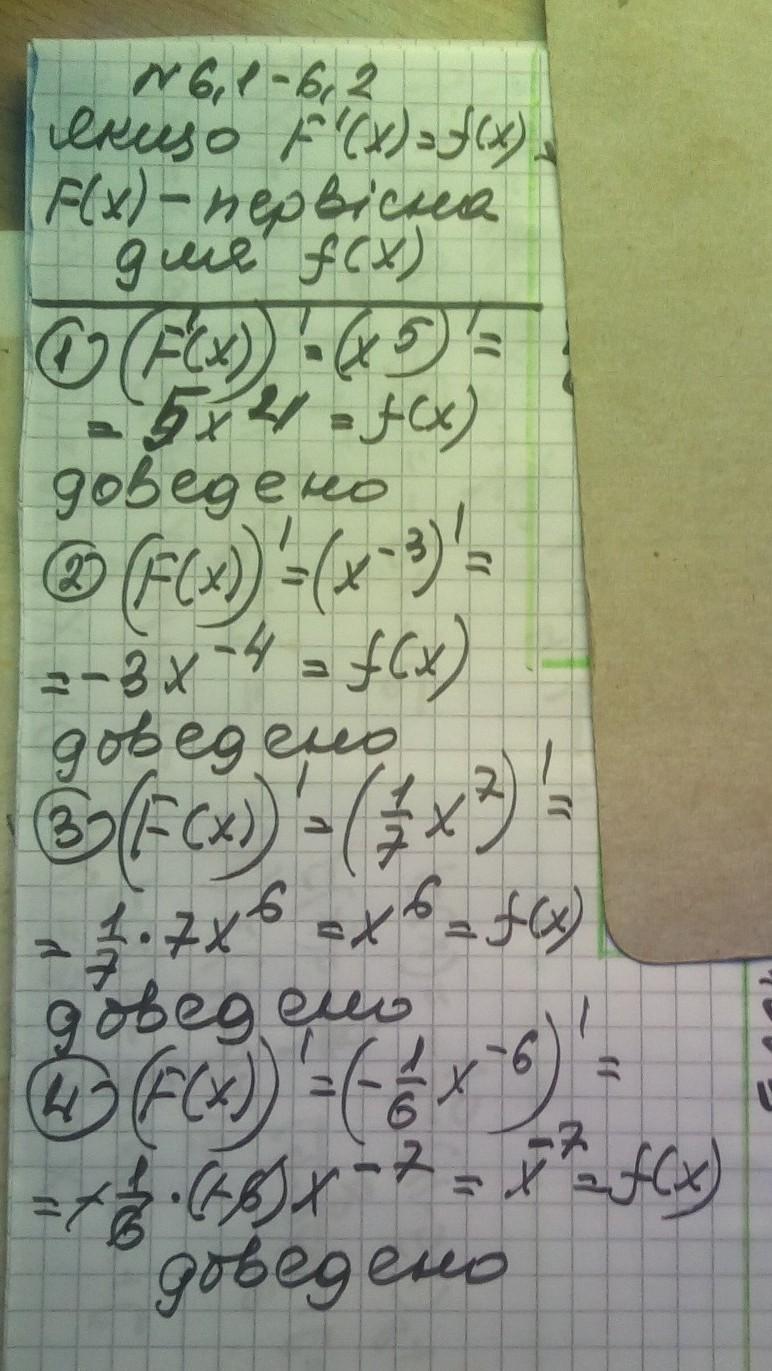 № 6,1-6,2
якщо F'(x)=f(x),
F(x) – первісна
для f(x)
① (F'(x))' = (x⁵)' =
= 5x⁴ = f(x)
доведено
② (F(x))' = (x⁻³)' =
= -3x⁻⁴ = f(x)
доведено
③ (F(x))' = (1/7 x⁷)' =
= 1/7 · 7x⁶ = x⁶ = f(x)
доведено
④ (F(x))' = (-1/6 x⁻⁶)' =
= -1/6 · (-6)x⁻⁷ = x⁻⁷ = f(x)
доведено